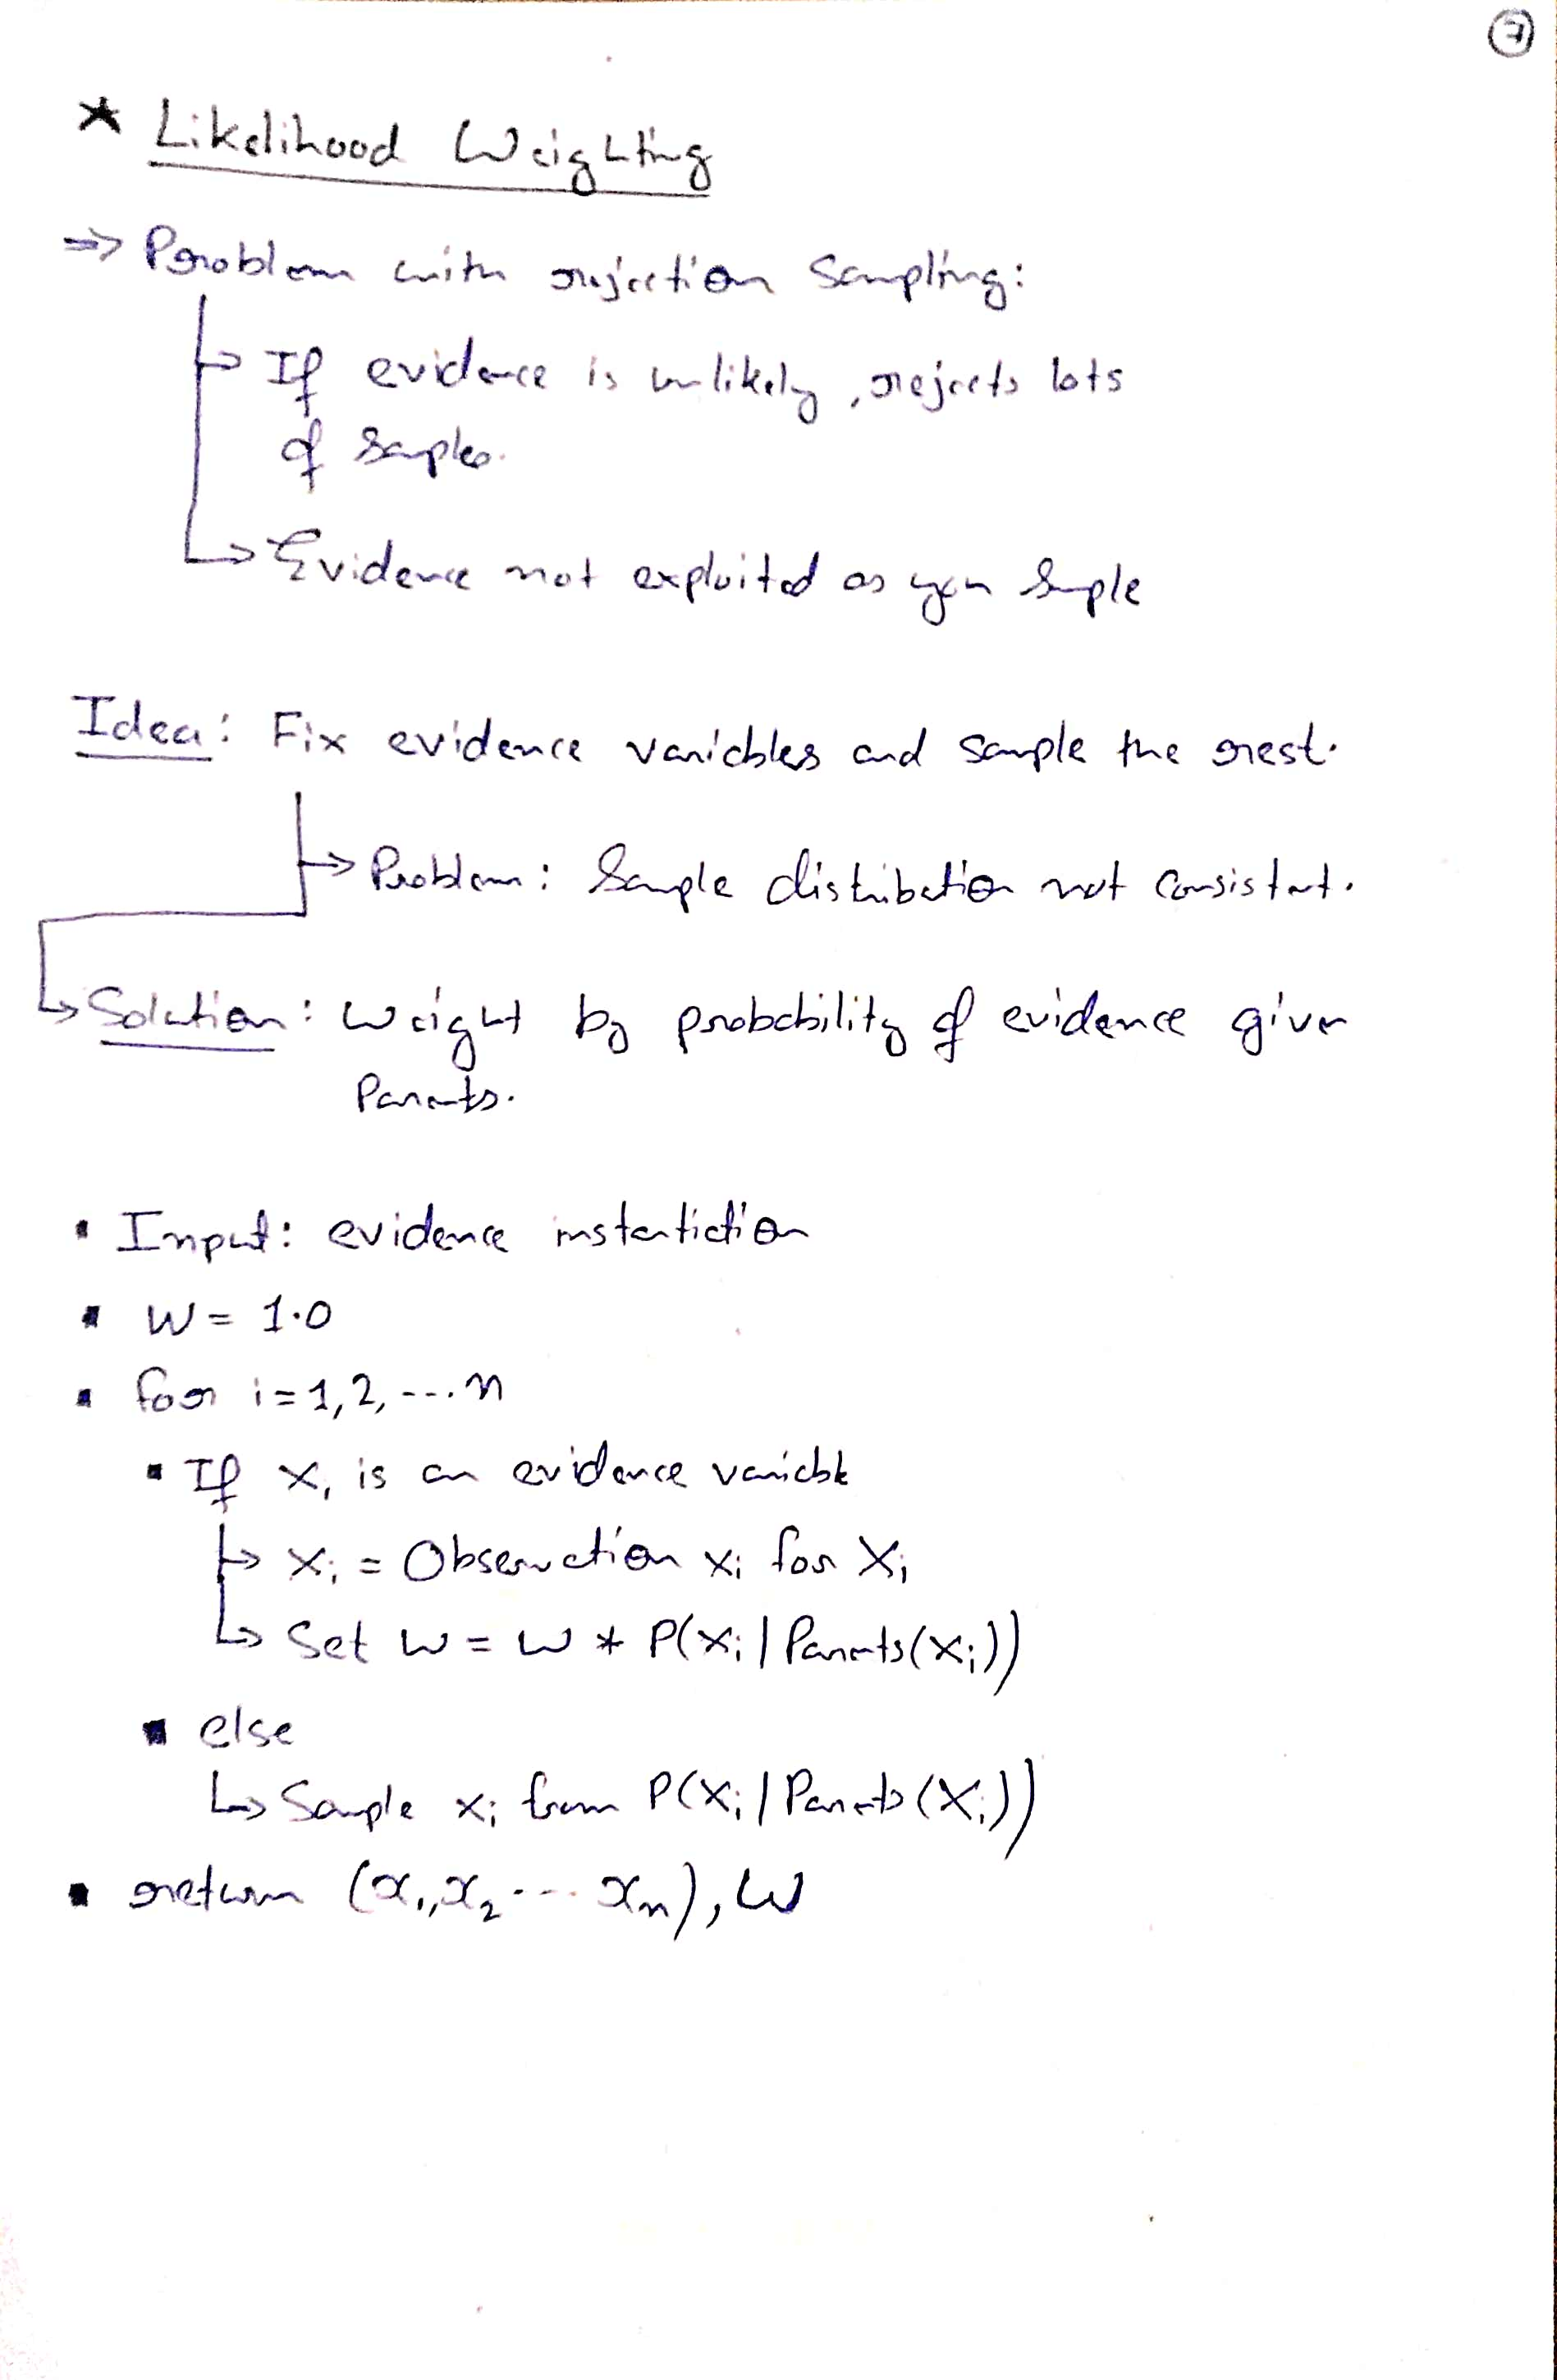 7
* Likelihood Weighting
=> Problem with rejection Sampling:
↳ If evidence is unlikely, rejects lots
of samples.
↳ Evidence not exploited as you sample
Idea: Fix evidence variables and sample the rest.
↳ Problem: Sample distribution not consistent.
↳ Solution: Weight by probability of evidence given
Parents.
▪ Input: evidence instantiation
▪ W = 1.0
▪ for i=1,2,....n
▪ If Xi is an evidence variable
↳ Xi = Observation xi for Xi
↳ Set w = w * P(xi | Parents(Xi))
▪ else
↳ Sample xi from P(Xi | Parents(Xi))
▪ return (x1,x2 ... xn), W